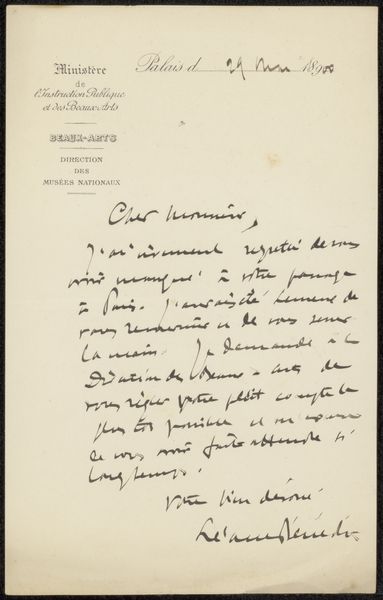 Ministère
de
l'Instruction Publique
et des Beaux-Arts
BEAUX-ARTS
DIRECTION
DES
MUSÉES NATIONAUX
Palais d 29 Mai 1900
Cher Monsieur,
J'ai vivement regretté de vous
avoir manqué à votre passage
à Paris. J'aurais été heureux de
vous remercier et de vous serrer
la main. Je demande à la
Direction des Beaux-arts de
vous régler votre petit compte le
plus tôt possible et m'excuse
de vous avoir fait attendre si
longtemps.
Votre bien dévoué
Léonce Bénédite